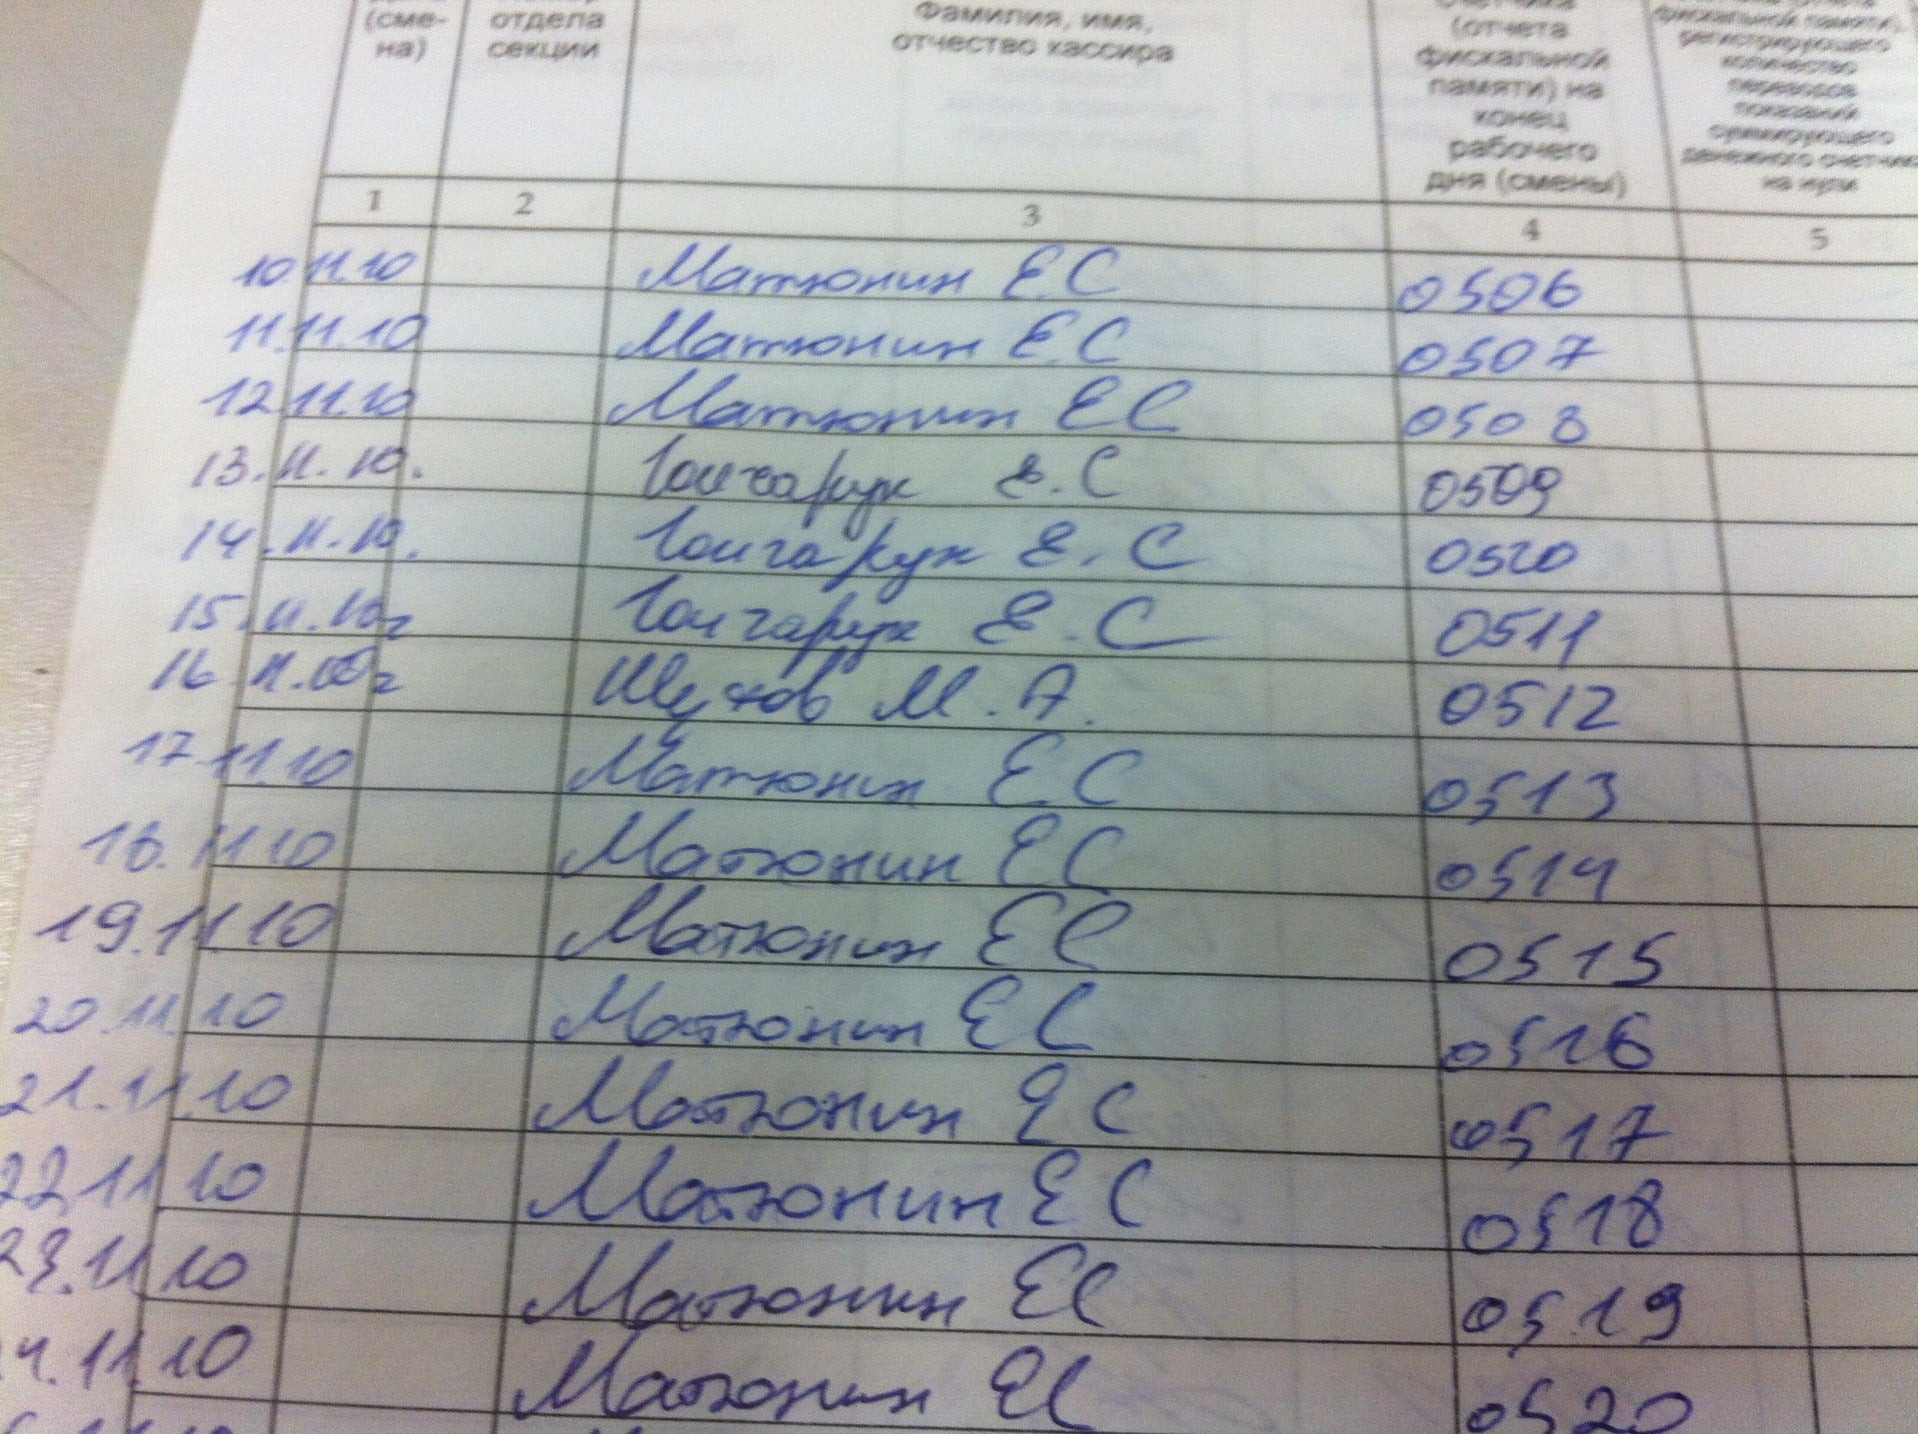 (сме-
на)
отдела
секции
Фамилия, имя,
отчество кассира
счетчика
(отчета
фискальной
памяти) на
конец
рабочего
дня (смены)
фискальной памяти),
регистрирующего
количество
переводов
показаний
суммирующего
денежного счетчика
на нули
1 2 3 4 5
10.11.10 Матюнин Е.С 0506
11.11.10 Матюнин Е.С 0507
12.11.10 Матюнин ЕС 0508
13.11.10. Гончарук Е.С 0509
14.11.10. Гончарук Е.С 0510
15.11.10г Гончарук Е.С 0511
16.11.10г М.А. 0512
17.11.10 Матюнин ЕС 0513
18.11.10 Матюнин ЕС 0514
19.11.10 Матюнин ЕС 0515
20.11.10 Матюнин ЕС 0516
21.11.10 Матюнин ЕС 0517
22.11.10 Матюнин ЕС 0518
23.11.10 Матюнин ЕС 0519
4.11.10 Матюнин ЕС 0520